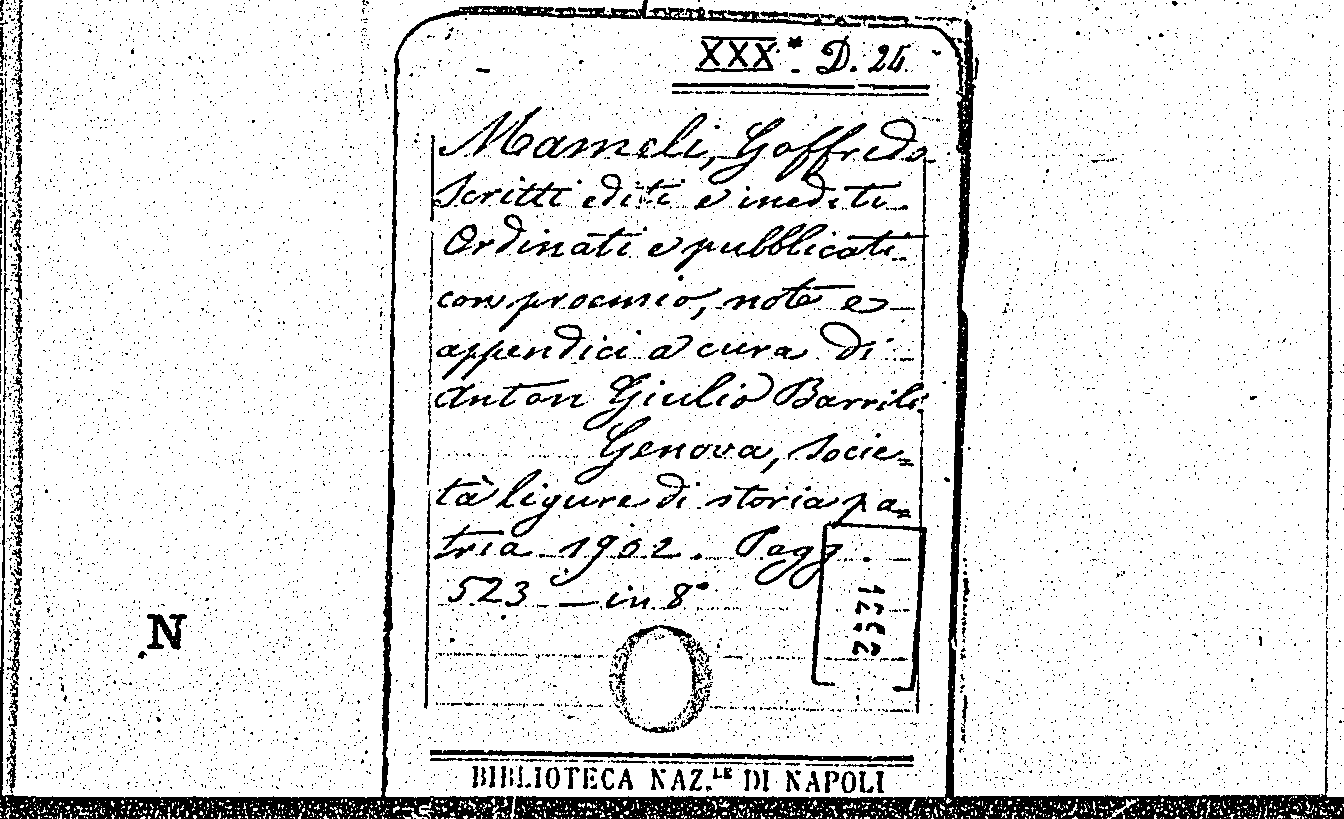 XXX* D. 24
Mameli, Goffredo
Scritti editi e inediti.
Ordinati e pubblicati
con proemio, note e
appendici a cura di
Anton Giulio Barrili
Genova, Socie=
tà ligure di storia pa=
tria 1902. Pagg.
523 — in 8°
N
BIBLIOTECA NAZ.LE DI NAPOLI